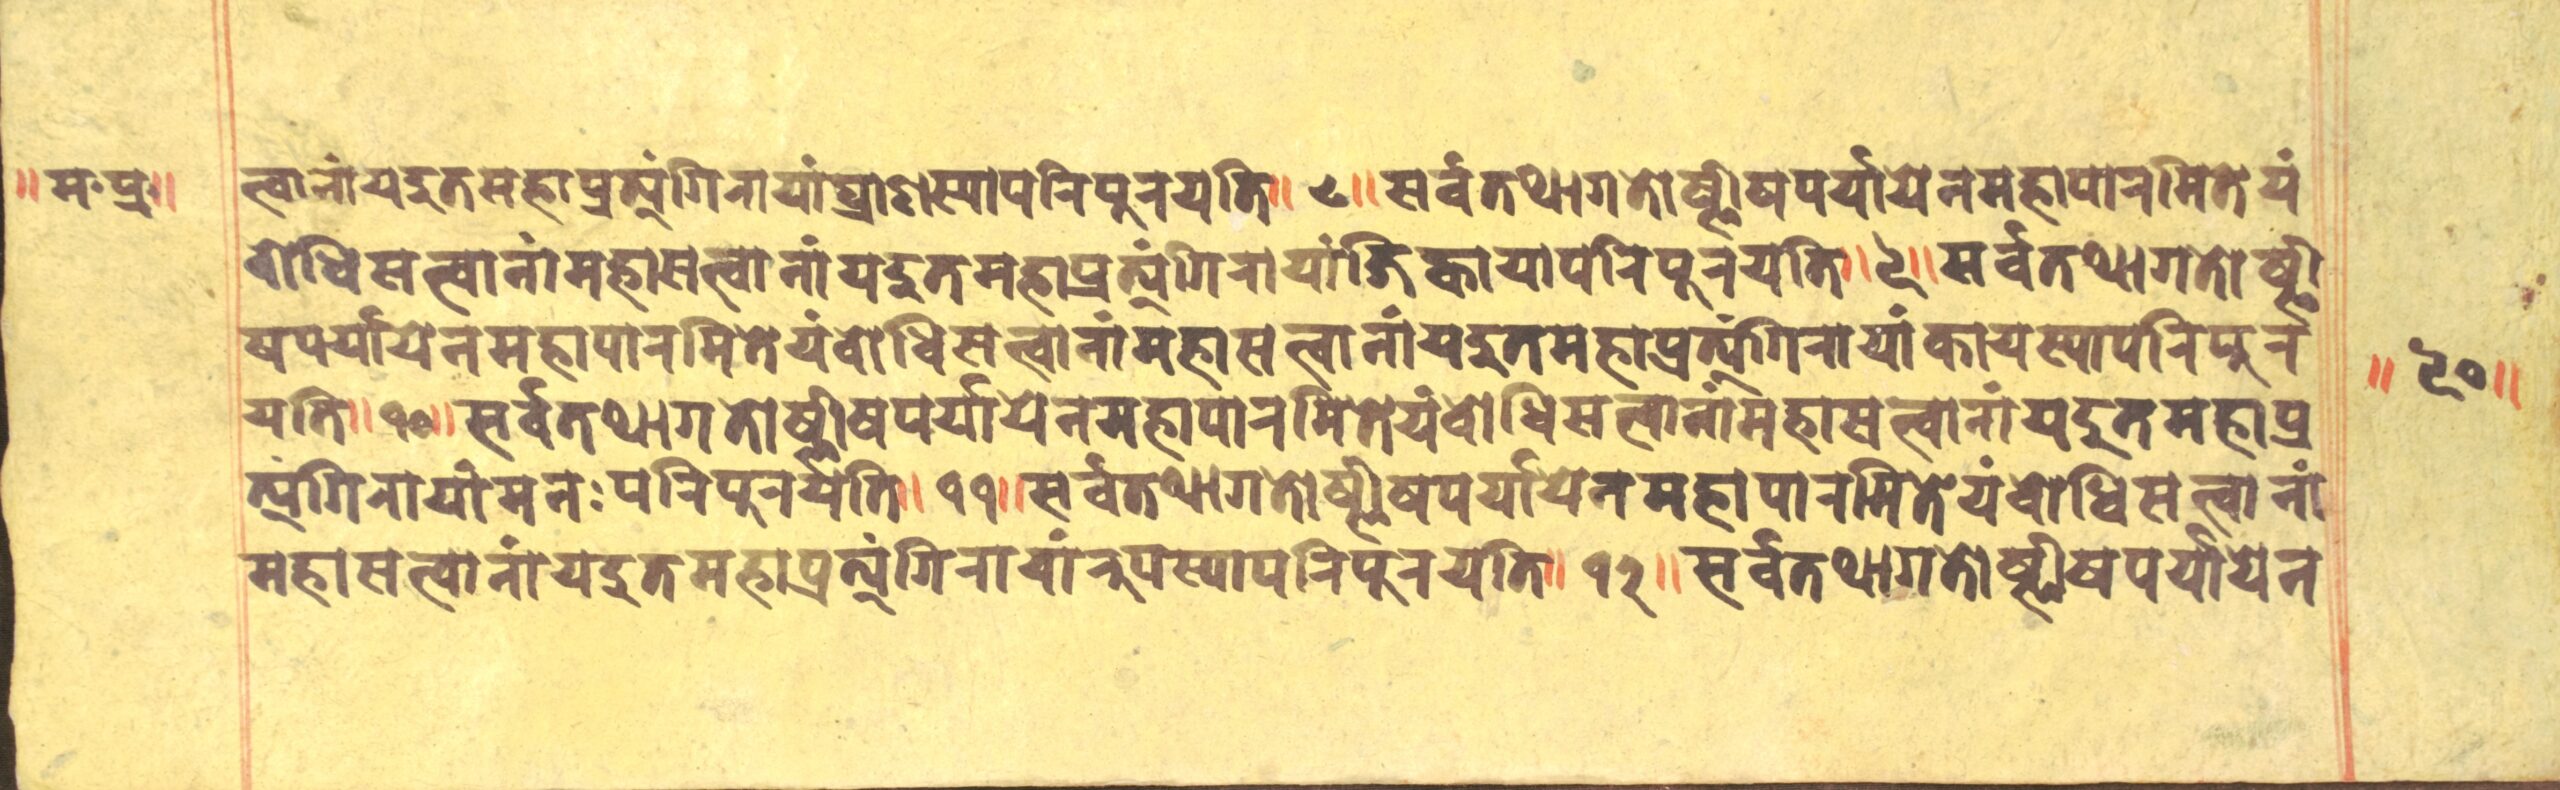 ॥म॰प्र॰॥
त्वानांयदुतमहाप्रत्यंगिनायांघ्राणस्यापनिपुनयति॥ ८॥सर्वतथागतोष्णीषपर्यायेनमहापानमितेयं
बोधिसत्वानांमहासत्वानांयदुतमहाप्रत्यंगिनायांजिह्वायापनिपुनयति॥९॥सर्वतथागतोष्णी
षपर्यायेनमहापानमितेयंबोधिसत्वानांमहासत्वानांयदुतमहाप्रत्यंगिनायांकायस्यापनिपुन
यति॥१०॥सर्वतथागतोष्णीषपर्यायेनमहापानमितेयंबोधिसत्वानांमहासत्वानांयदुतमहाप्र
त्यंगिनायांमनःपनिपुनर्यति॥११॥सर्वतथागतोष्णीषपर्यायेनमहापानमितेयंबोधिसत्वानां
महासत्वानांयदुतमहाप्रत्यंगिनायांनुपस्यापनिपुनयति॥१२॥सर्वतथागतोष्णीषपर्यायेन
॥२०॥